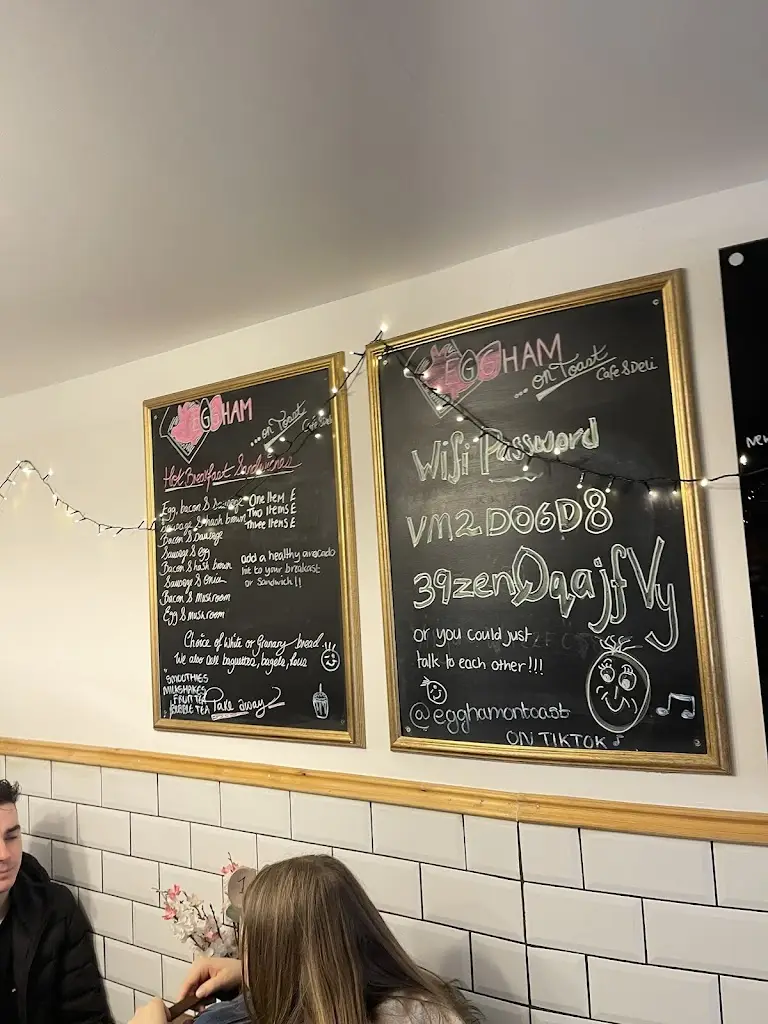 EGGHAM
...on Toast
Café & Deli
Hot Breakfast Sandwiches
Egg, bacon & Sausage
Sausage & hash brown
Bacon & Sausage
Sausage & egg
Bacon & hash brown
Sausage & onion
Bacon & mushroom
Egg & mushroom
One Item £
Two Items £
Three Items £
add a healthy avocado
to your breakfast
or Sandwich!!
Choice of White or Granary bread
We also baguettes, bagels,
SMOOTHIES
MILKSHAKES
FRUIT TEA
BUBBLE TEA
Take away
EGGHAM
...on Toast
Cafe & Deli
Wifi Password
VM2DO6D8
39zenQqajfVy
or you could just
talk to each other!!!
@egghamontoast
ON TIKTOK
1